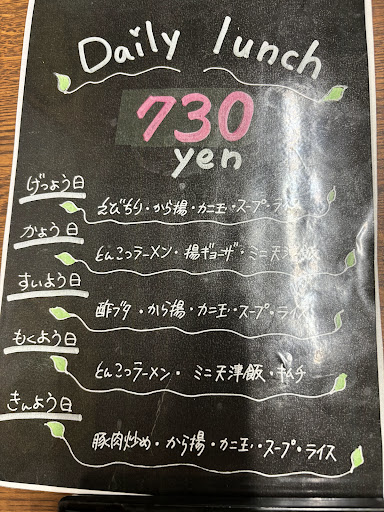 Daily lunch
730
yen
げつよう日
えびちり・から揚・カニ玉・スープ・ライス
かよう日
とんこつラーメン・揚ギョーザ・ミニ天津飯
すいよう日
酢ブタ・から揚・カニ玉・スープ・ライス
もくよう日
とんこつラーメン・ミニ天津飯・キムチ
きんよう日
豚肉炒め・から揚・カニ玉・スープ・ライス